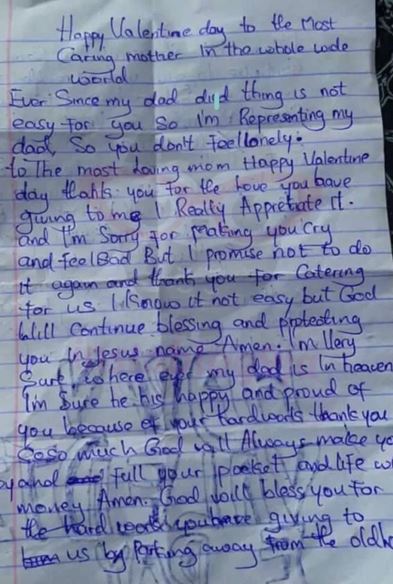 Happy Valentine day to the Most
Caring mother In the whole wide
world
Ever Since my dad died thing is not
easy for you So I'm Representing my
dad, So you don't feel lonely.
to The most loving mom Happy Valentine
day thanks you for the love you have
giving to me I Really Appreciate it.
and I'm Sorry for Making you Cry
and feel Bad But I promise not to do
it again and thank you for Catering
for us I Know it not easy but God
Will Continue blessing and protecting
you In Jesus name Amen. I'm Very
Sure, where ever my dad is In heaven
I'm Sure he his happy and proud of
you because of your hardworks thank you
So so much God will Always make yo
and full your pocket and life w
money Amen. God will bless you for
the hard works you have giving to
us by away from the old